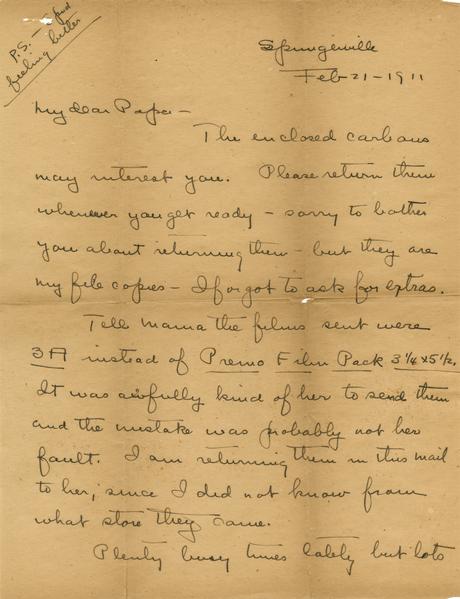 P.S. — Spud
feeling better
Springville
Feb 21 - 1911
My dear Papa —
The enclosed carbons
may interest you. Please return them
whenever you get ready — sorry to bother
you about returning them — but they are
my file copies — I forgot to ask for extras.
Tell Mama the films sent were
3A instead of Premo Film Pack 3 1/4 x 5 1/2.
It was awfully kind of her to send them
and the mistake was probably not her
fault. I am returning them in this mail
to her, since I did not know from
what store they came.
Plenty busy times lately but lots